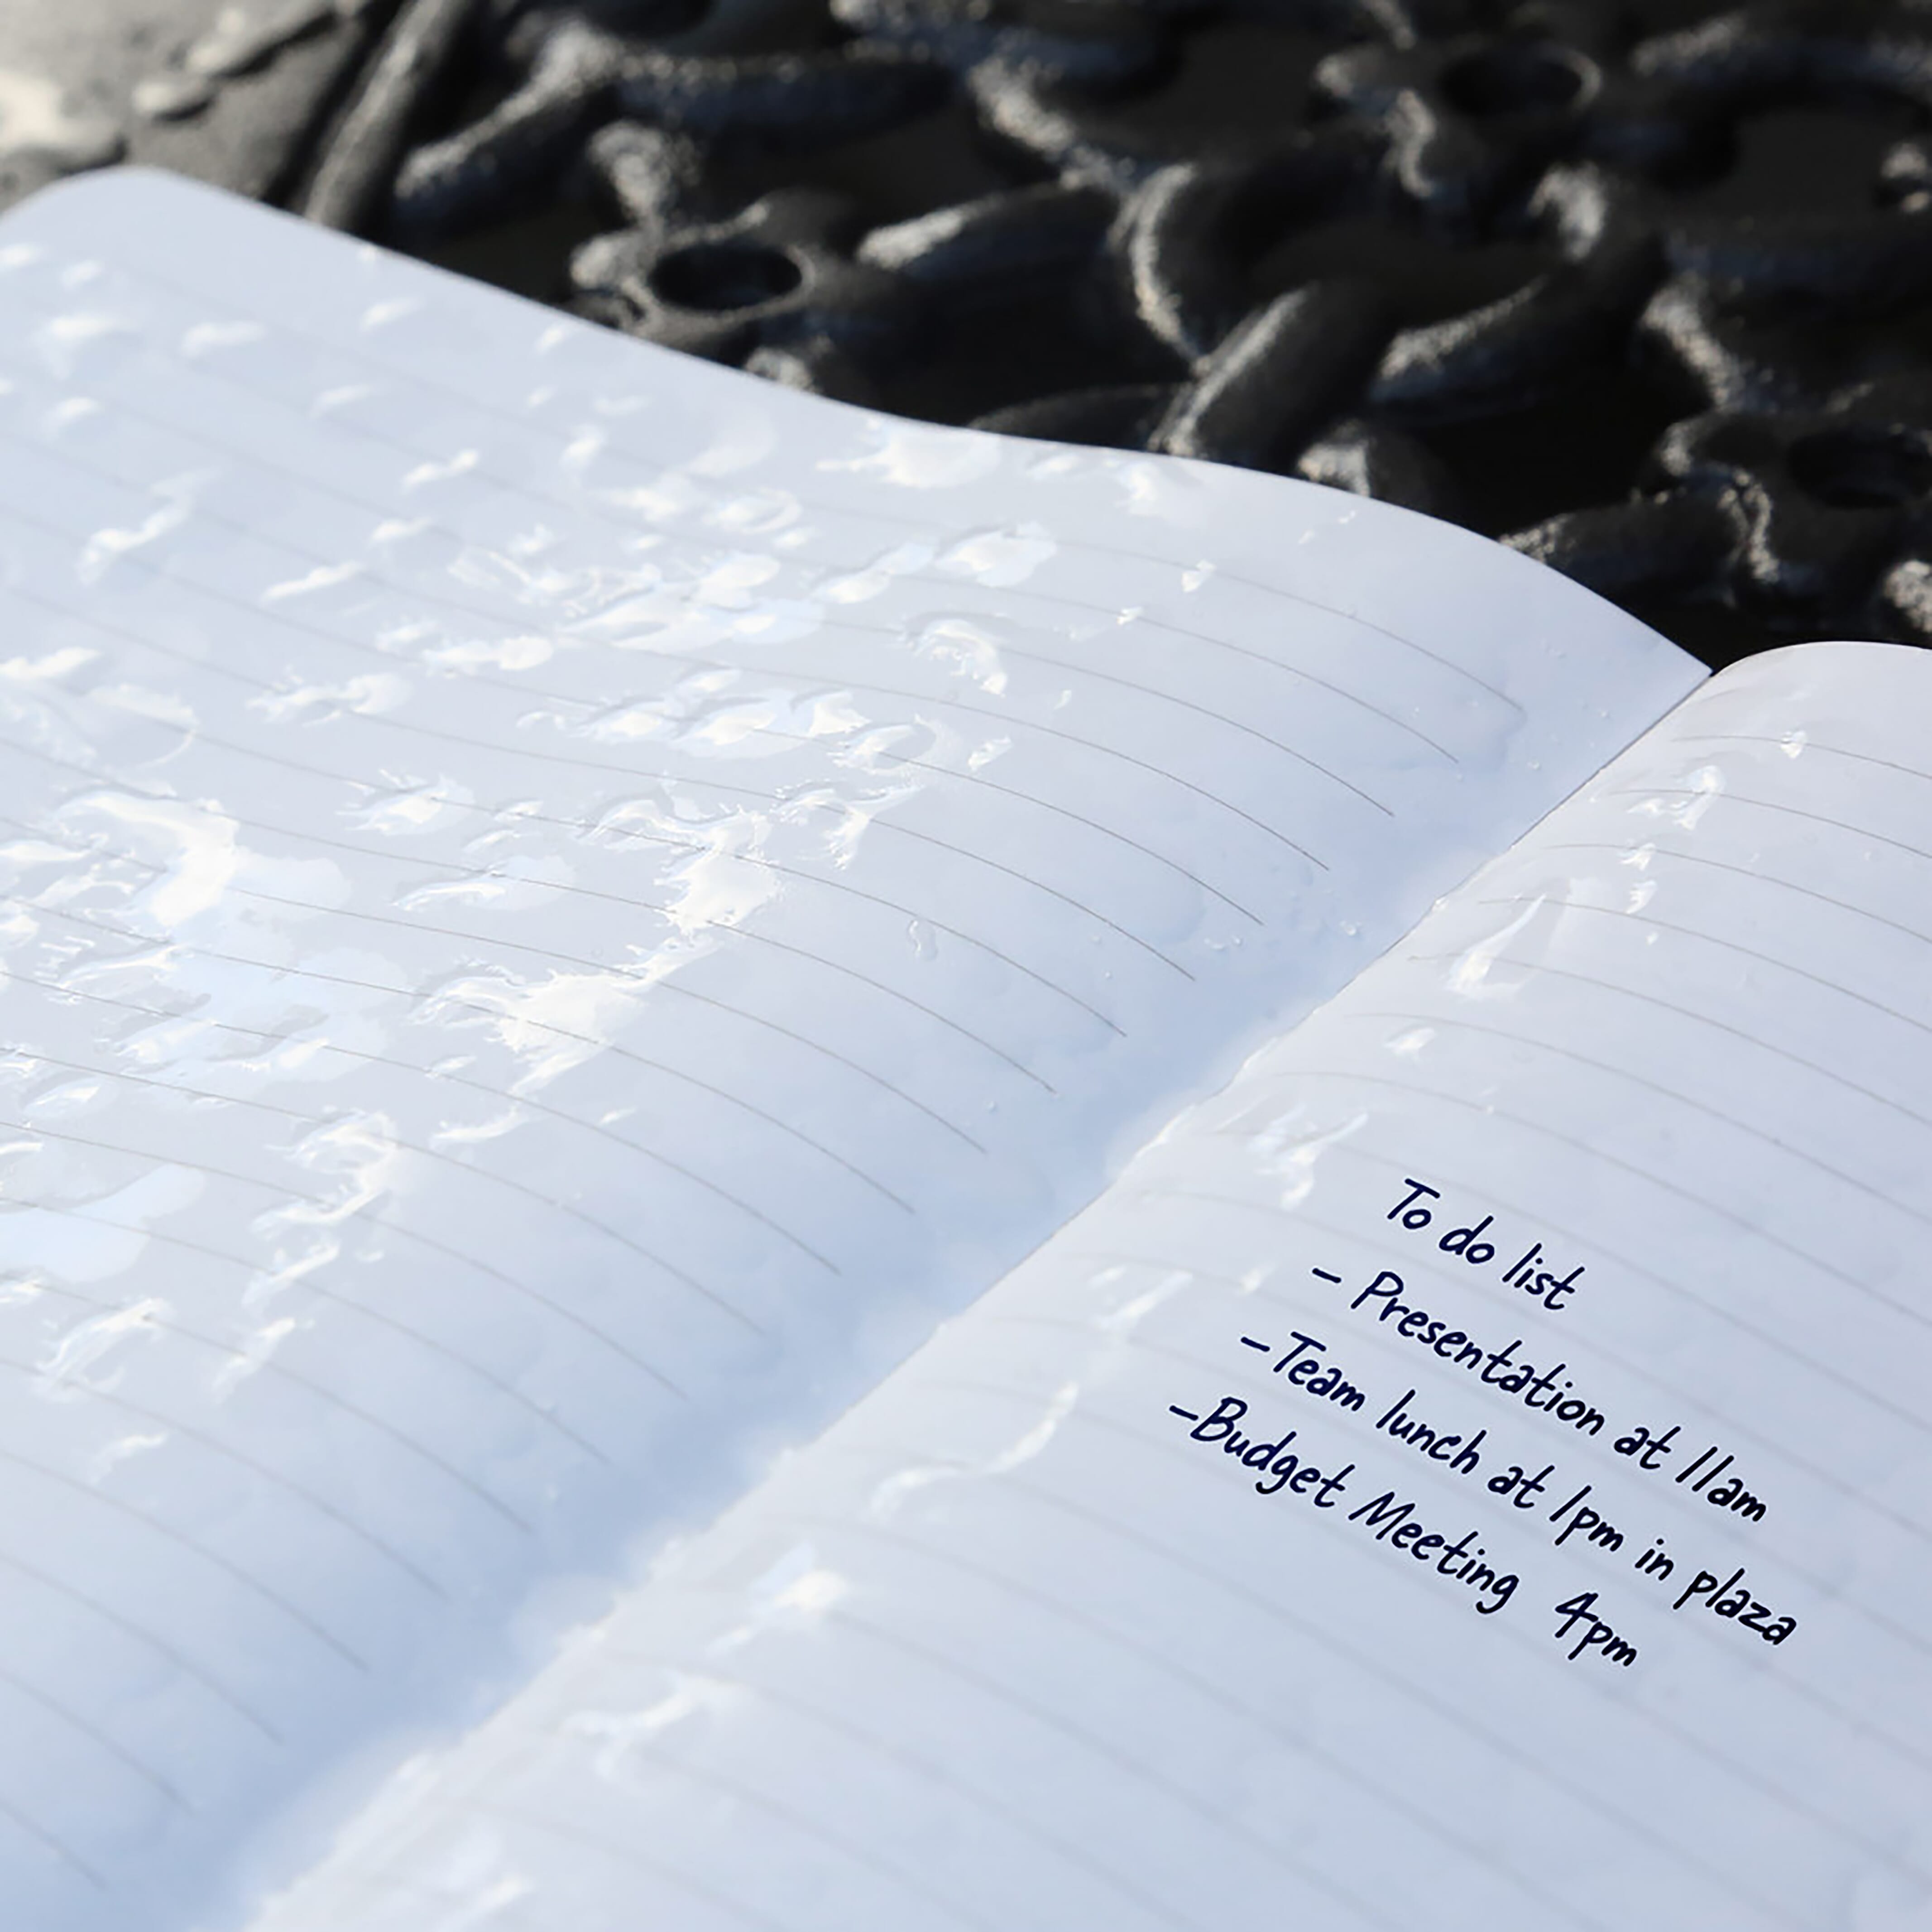 To do list
- Presentation at 11am
-Team lunch at 1pm in plaza
-Budget Meeting 4pm